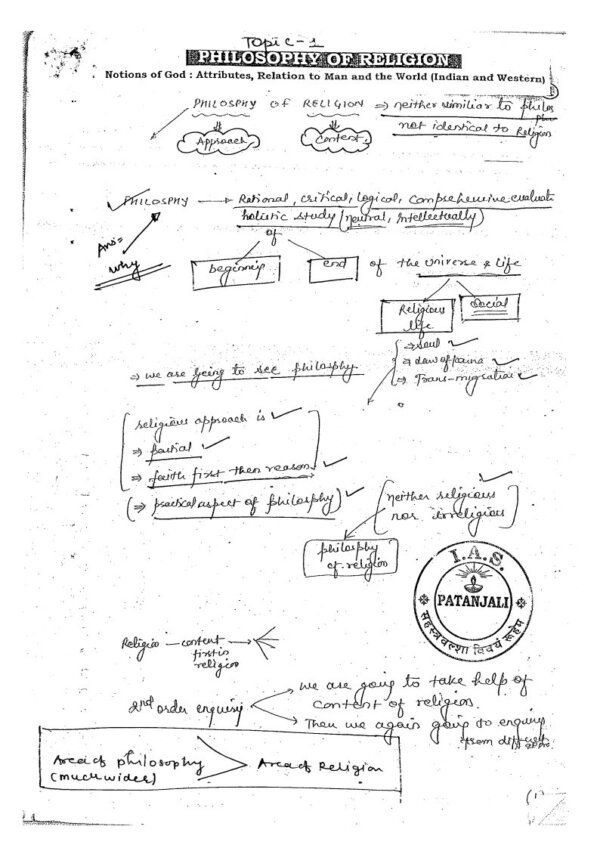 Topic-1
PHILOSOPHY OF RELIGION
Notions of God : Attributes, Relation to Man and the World (Indian and Western)
PHILOSPHY OF RELIGION ⇒ neither similiar to philos
phy
not identical to Religion
Approach
Content
PHILOSPHY → Rational, critical, logical, comprehensive evaluate
holistic study (neural, intellectually)
of
Ans=
why
beginnig
end
of the universe & life
Religious
life
social
⇒ soul
⇒ law of karma
⇒ Trans-migration
⇒ we are going to see philosphy.
religious approach is
⇒ partial
⇒ faith first then reason
(⇒ practical aspect of philosphy)
neither religious
nor irreligious
philosphy
of religion
I.A.S.
PATANJALI
सहस्त्रवल्शा वि वयं रुहेम
Religio — content
first in
religion
2nd order enquiry
→ we are going to take help of
content of religion.
→ Then we again going to enquiry
from
Area of philosophy
(much wider)
> Area of Religion
(1)